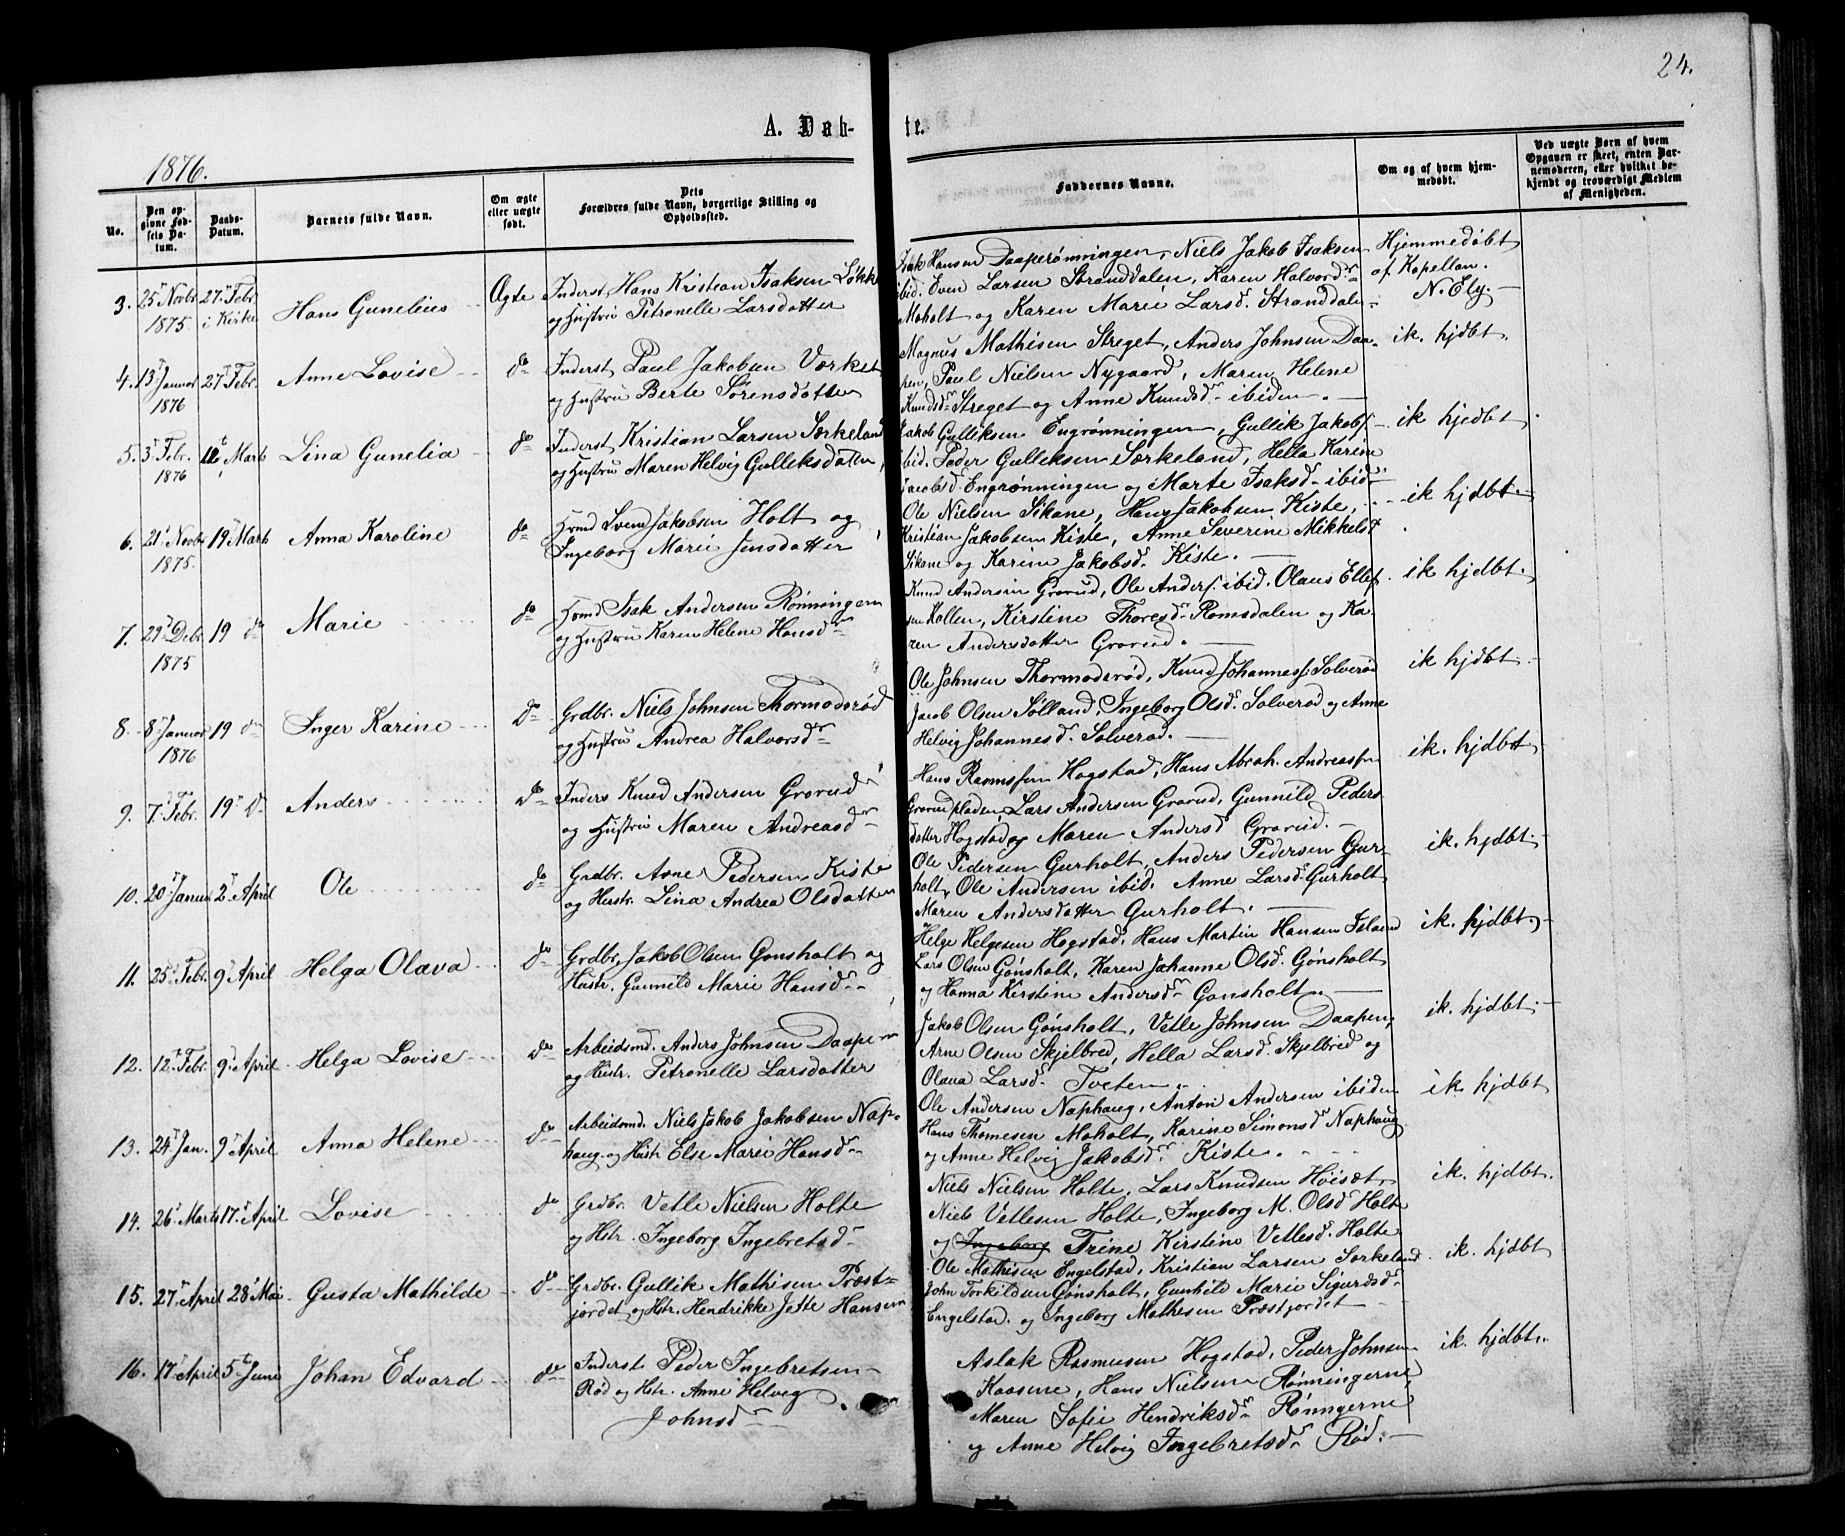 24.
A. Døb-
te.
1876.
No.
Den op-
givne Fød-
sels Da-
tum.
Daabs-
Datum.
Barnets fulde Navn.
Om ægte
eller uægte
født.
Dets
Forældres fulde Navn, borgerlige Stilling og
Opholdssted.
Faddernes Navne.
Om og af hvem hjem-
medøbt.
Ved uægte Børn af hvem
Opgaven er skeet, enten Bar-
nemoderen, eller hvilket be-
kjendt og troværdigt Medlem
af Menigheden.
3. 25 Novbr 1875 27 Febr. i Kirke Hans Gunelius Ægte
Inderst Hans Kristian Isaksen Løkke
og Hustru Petronelle Larsdatter
Isak Hansen Daaperønningen, Niels Jakob Isaksen
ibid. Even Larsen Stranddalen, Karen Halvordsr
Moholt og Karen Marie Larsd. Stranddalen
Hjemmedøbt
af Kapellan.
N. Ely.
4. 13 Januar 1876 27 Febr. Anne Lovise do
Inderst Paul Jakobsen Værket
og Hustru Berte Sørensdatter
Magnus Mathisen Streget, Anders Johnsen Daa-
pen, Paul Nielsen Nygaard, Maren Helene
Knudsdr Streget og Anne Knudsdr ibiden.
ik. hjdbt.
5. 3 Febr. 1876 12 Marts Lina Gunelia do
Inderst Kristian Larsen Sørkeland
og Hustru Maren Helvig Gulleksdatter
Jakob Gulliksen Engrønningen, Gullik Jakobs.
ibid. Peder Gulleksen Sørkeland, Hella Karine
Jacobsd. Engrønningen og Marte Isaksdr ibid.
ik hjdbt
6. 21 Novbr 1875 19 Marts Anna Karoline do
Hrmd Svend Jakobsen Holt og
Ingeborg Marie Jensdatter
Ole Nielsen Sikane, Hans Jakobsen Kiste,
Kristian Jakobsen Kiste, Anne Severine Mikkelsd
Sikane og Karine Jakobsd. Kiste.
ik hjdbt.
7. 29 Debr 1875 19 do Marie do
Hrmd Isak Andersen Rønningen
og Hustru Karen Helene Hansdr
Knud Andersen Grorud, Ole Anders. ibid. Olaus Ellef-
sen Hollen, Kirstine Thoresdr Romsdalen og Ka-
ren Andersdatter Grorud.
ik hjdbt.
8. 8 Januar 1876 19 do Inger Karine do
Grdbr. Niels Johnsen Thormodsrød
og Hustru Andrea Halvorsdr
Ole Johnsen Thormodsrød, Knud Johanness. Solverød
Jacob Olsen Sølland, Ingeborg Olsd. Solverød og Anne
Helvig Johannesd. Solverød.
ik hjdbt.
9. 7 Febr. 19 do Anders do
Inders Knud Andersen Grorud
og Hustru Maren Andreasdr
Hans Rasmussen Hogstad, Hans Abrah. Andreassen
Grorudpladen, Lars Andersen Grorud, Gunnild Peders-
datter Hogstad og Maren Andersd Grorud.
ik. hjdbt.
10. 20 Januar 2 April Ole do
Grdbr. Arne Pedersen Kiste
og Hustr. Lina Andrea Olsdatter
Ole Pedersen Gurholt, Anders Pedersen Gur-
holt, Ole Andersen ibid. Anne Larsd. Gurholt
Maren Andersdatter Gurholt.
ik. hjdbt.
11. 25 Febr. 9 April Helga Olava do
Grdbr. Jakob Olsen Gonsholt og
Hustr. Gunnild Marie Hansdr
Helge Helgesen Hogstad, Hans Martin Hansen
Lars Olsen Gønsholt, Karen Johanne Olsd. Gønsholt
og Hanna Kirstine Andersdr Gonsholt.
ik. hjdbt.
12. 12 Febr. 9 April Helga Lovise do
Arbeidsmd. Anders Johnsen Daapen
og Hustr. Petronelle Larsdatter
Jakob Olsen Gønsholt, Vetle Johnsen Daapen,
Arne Olsen Skjelbred, Hella Larsd. Skjelbred og
Olava Larsd. Tveten.
ik. hjdbt.
13. 24 Jan. 9 April Anna Helene do
Arbeidsmd. Niels Jakob Jakobsen Nap-
haug og Hustr Else Marie Hansdr
Ole Andersen Naphaug, Anton Andersen ibiden
Hans Thomesen Moholt, Karine Simonsd Naphaug
og Anne Helvig Jakobsdr Kiste.
ik. hjdbt
14. 26 Marts 17 April Lovise do
Grdbr. Vetle Nielsen Holte
og Hstr. Ingeborg Ingebretsd
Niels Nielsen Holte, Lars Knudsen Høisæt,
Niels Vetlesen Holte, Ingeborg M. Olsd Holte
og Ingeborg Trine Kirstine Vetlesd. Holte
ik. hjdbt.
15. 27 April 28 Mai Gusta Mathilde do
Grdbr. Gullik Mathisen Præst-
jordet og Hstr. Hendrikke Jette Hansen
Ole Mathisen Engelstad, Kristian Larsen Sørkeland
John Torkildsen Gønsholt, Gunhild Marie Sigurdsdr
Engelstad. og Ingeborg Mathisen Præstjordet
ik. hjdbt
16. 17 April 5 Juni Johan Edvard do
Inderst Peder Ingebretsen
Rød og Hstr. Anne Helvig
Johnsdr
Aslak Rasmusen Hogstad, Peder Johnsen
Kaasene, Hans Nielsen Rønningerne,
Maren Sofie Hendriksdr Rønngerne
og Anne Helvig Ingebretsdr Rød.
ik. hjdbt.